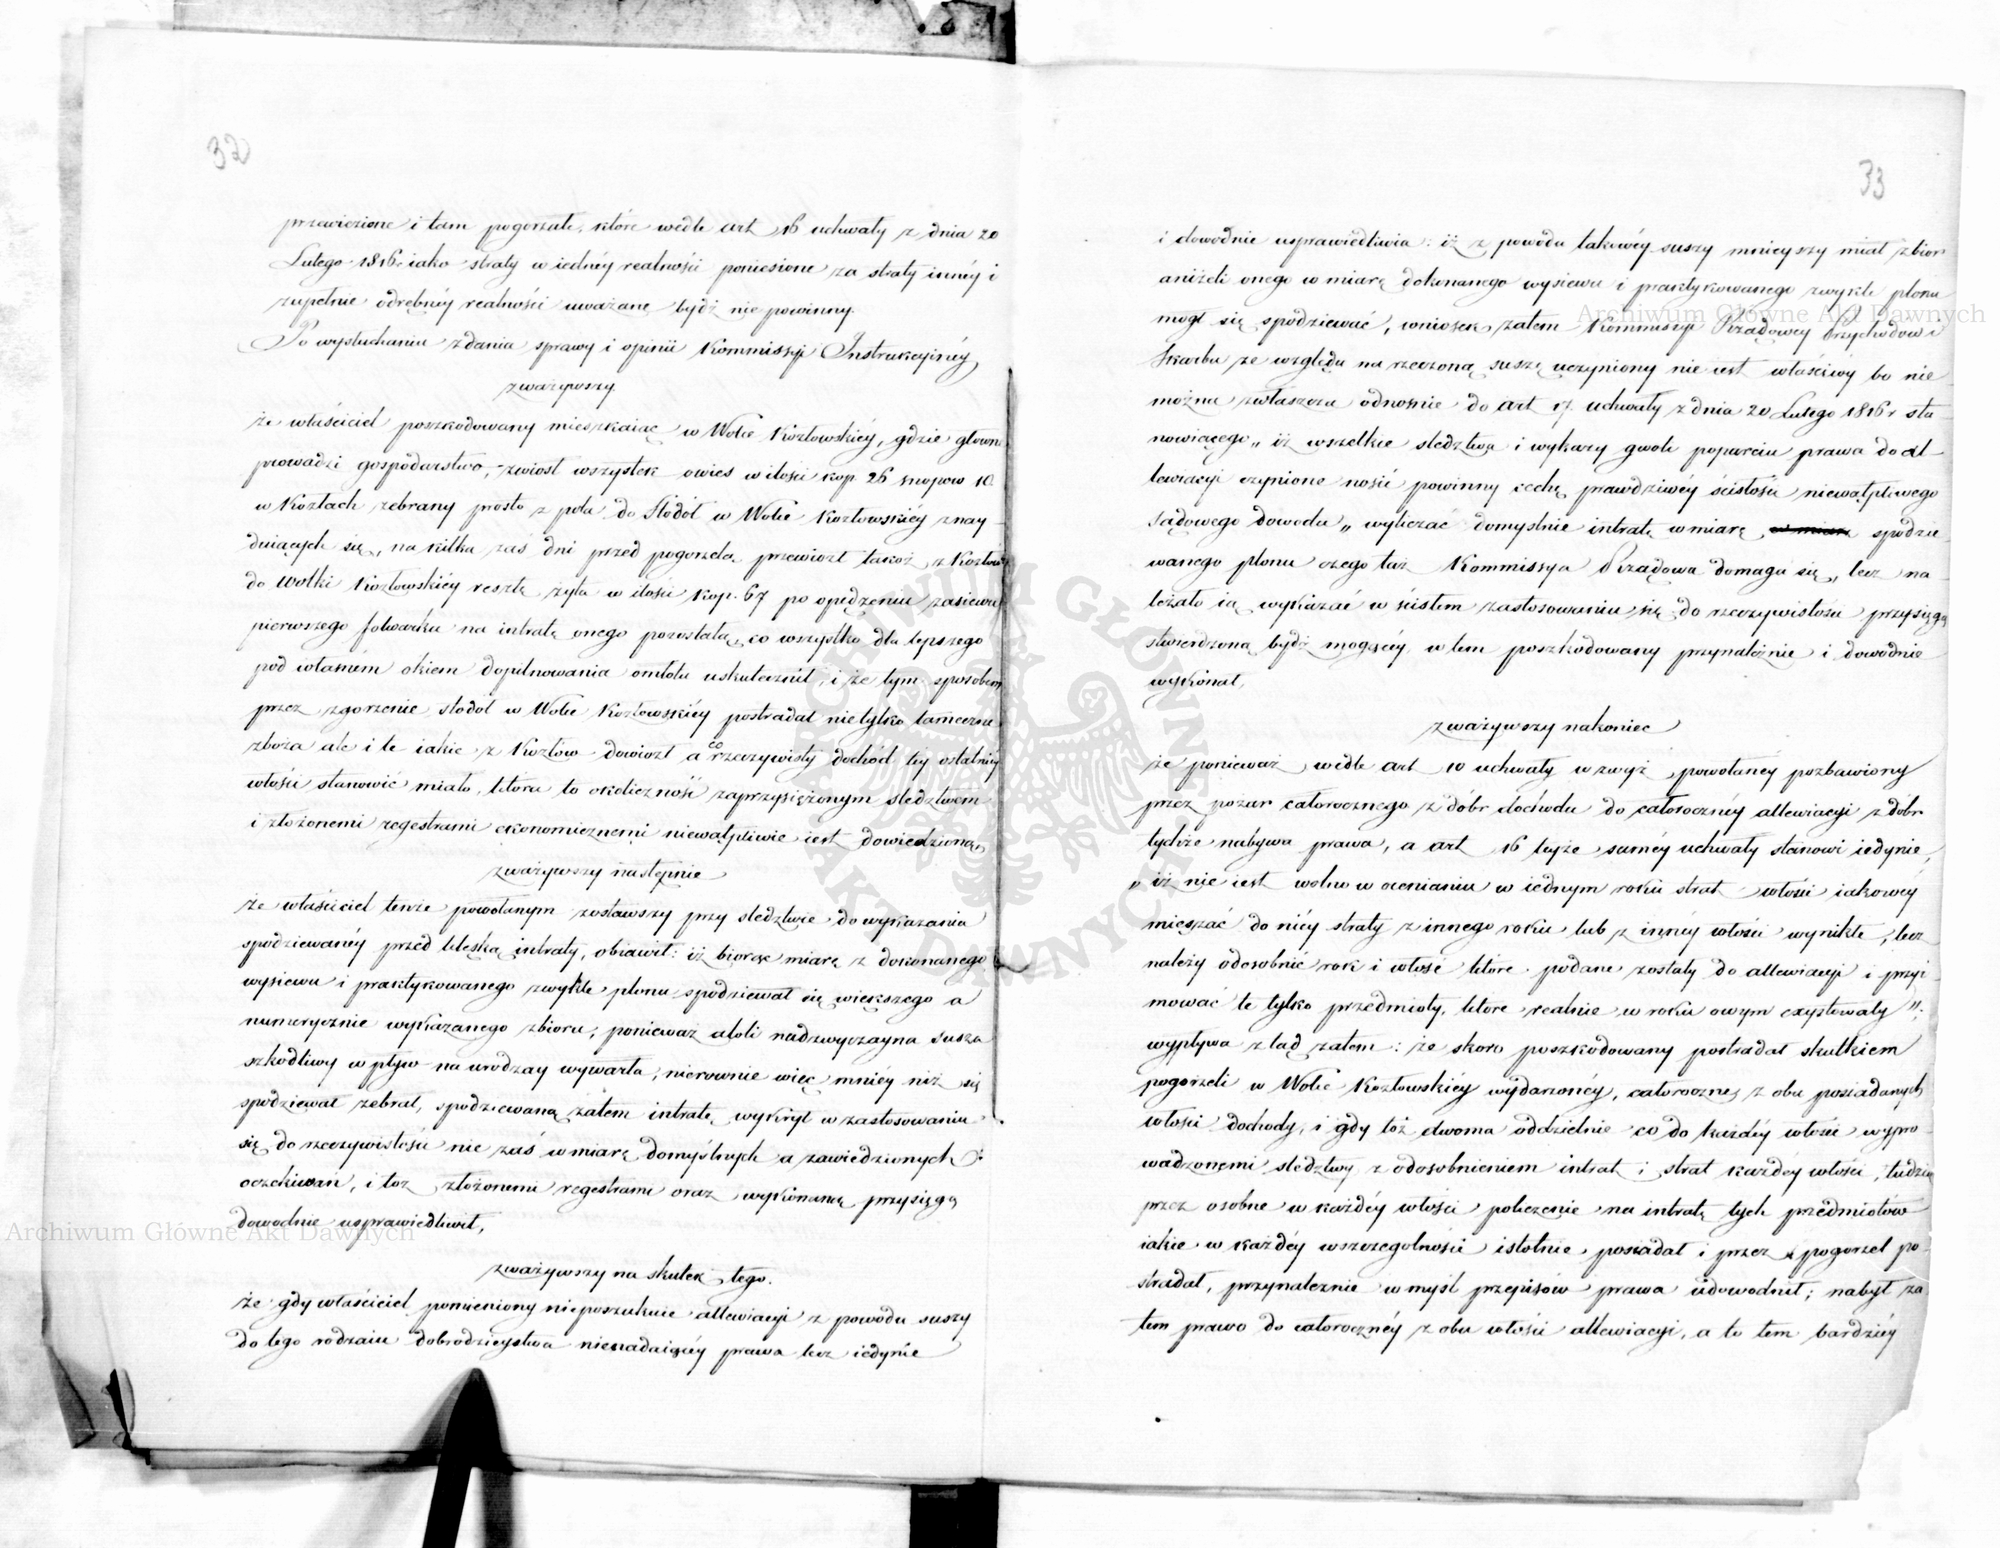 32
przewiezione i tam pogorzałe, które wedle art 16 uchwały z dnia 20
Lutego 1816 r iako straty w iednéy realności poniesione za straty innéy i
zupełnie odrębnéy realności uważane bydź nie powinny.
Po wysłuchaniu zdania sprawy i opinii Kommissyi Instrukcyinéy
zważywszy
że właściciel poszkodowany mieszkaiąc w Wolce Kozłowskiéy, gdzie główne
prowadzi gospodarstwo, zwiozł wszystek owies w ilości kop 26 snopow 10
w Kozłach zebrany prosto z pola do Stodół w Wolce Kozłowskiéy znay
duiących się, na kilka zaś dni przed pogorzelą przewiozł takoż z Kozłow
do Wolki Kozłowskiéy resztę żyta w ilości kop. 67 po opędzeniu zasiewu
pierwszego folwarku na intratę onego pozostałą, co wszystko dla lepszego
pod własném okiem dopilnowania omłotu uskutecznił, i że tym sposobem
przez zgorzenie stodół w Wolce Kozłowskiéy postradał nietylko tameczne
zboża ale i te iakie z Kozłów dowiozł a co rzeczywisty dochód téy ostatniéy
włości stanowić miało, która to okoliczność zaprzysiężonym śledztwem
i złożonemi regestrami ekonomicznemi niewątpliwie iest dowiedzioną,
zważywszy następnie
że właściciel tenże powołanym zostawszy przy śledztwie do wykazania
spodziewanéy przed klęską intraty, obiawił: iż biorąc miarę z dokonanego
wysiewu i praktykowanego zwykle plonu spodziewał się większego a
numerycznie wykazanego zbioru, ponieważ atoli nadzwyczayna susza
szkodliwy wpływ na urodzay wywarła, nierownie więc mniéy niż się
spodziewał zebrał, spodziewaną zatem intratę wykrył w zastosowaniu
się do rzeczywistości nie zaś w miarę domyślnych a zawiedzionych
oczekiwań, i toż złożonemi regestrami oraz wykonaną przysięgą
dowodnie usprawiedliwił,
zważywszy na skutek tego.
że gdy właściciel pomieniony nieposzukuie allewiacyi z powodu suszy
do tego rodzaiu dobrodzieystwa nienadaiącéy prawa lecz iedynie
33
i dowodnie usprawiedliwia: iż z powodu takowéy suszy mnieyszy miał zbior
aniżeli onego w miarę dokonanego wysiewu i praktykowanego zwykle plonu
mogł się spodziewać, wniosek zatem Kommissyi Rządowey Przychodow i
Skarbu ze względu na rzeczoną suszę uczyniony nie iest właściwy bo nie
można zwłaszcza odnośnie do art 17 uchwały z dnia 20 Lutego 1816 r sta
nowiącego „ iż wszelkie śledztwa i wykazy gwoli poparciu prawa do al-
lewiacyi czynione nosić powinny cechę prawdziwéy ścisłości niewątpliwego
sądowego dowodu „ wyliczać domyślnie intratę w miarę spodzie
wanego plonu czego też Kommissya Rządowa domaga się, lecz na
leżało ią wykazać w ścisłem zastosowaniu się do rzeczywistości przysięgą
stwierdzoną bydź mogącéy w tem poszkodowany przynależnie i dowodnie
wykonał,
zważywszy nakoniec
że ponieważ wedle art 10 uchwały wzwyż powołanéy pozbawiony
przez pożar całorocznego z dóbr dochodu do całorocznéy allewiacyi z dóbr
tychże nabywa prawa, a art 16 teyże saméy uchwały stanowi iedynie,
„ iż nie iest wolno w ocenianiu w iednym roku strat włości iakowéy
mięszać do niéy straty z innego roku lub z innéy włości wynikłe, lecz
należy odosobnić rok i włość które podane zostały do allewiacyi i przyi
mować te tylko przedmioty, które realnie w roku owym exystowały ";
wypływa ztąd zatem: że skoro poszkodowany postradał skutkiem
pogorzeli w Wolce Kozłowskiéy wydarzonéy, całoroczne z obu posiadanych
włości dochody, i gdy toż dwoma oddzielnie co do każdéy włości wypro
wadzonemi śledztwy z odosobnieniem intrat i strat każdéy włości, tudzież
przez osobne w każdéy włości policzenie na intratę tych przedmiotów
iakie w każdéy wszczegolności istotnie posiadał i przez pogorzel po-
stradał, przynależnie w myśl przepisów prawa udowodnił; nabył za
tem prawo do całorocznéy z obu włości allewiacyi, a to tem bardziéy